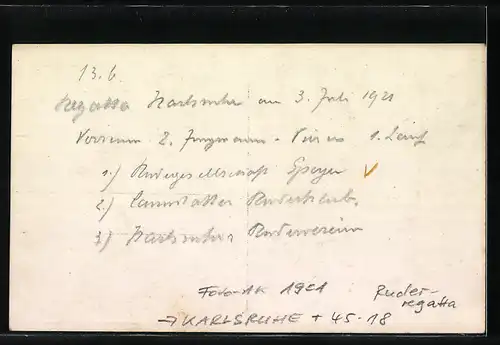 13.6
Regatta Karlsruhe am 3. Juli 1921
Vorrennen 2. Jungmann-Vierer 1. Lauf
1.) Rudergesellschaft Speyer √
2.) Cannstatter Ruderklub.
3.) Karlsruher Ruderverein
Foto-AK 1921
Ruder-
regatta
→KARLSRUHE + 45-18